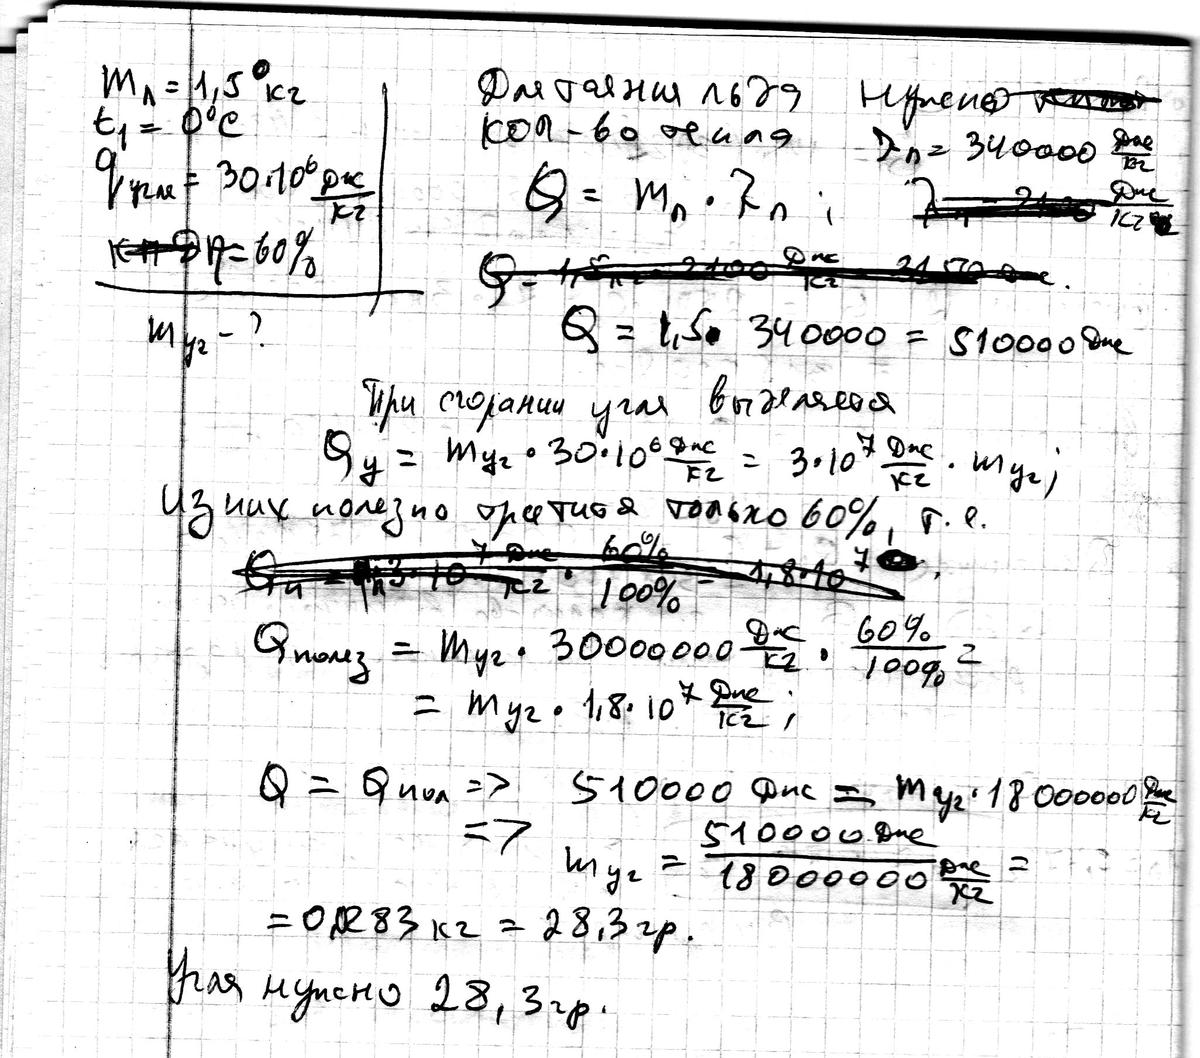 mл = 1,5 кг
t₁ = 0°C
qугля = 30·10⁶ Дж/кг
η = 60%
mуг - ?
Для таяния льда нужно
кол-во тепла
λл = 340000 Дж/кг
Q = mл · λл ;
Q = 1,5 · 340000 = 510000 Дж
При сгорании угля выделяется
Qу = mуг · 30·10⁶ Дж/кг = 3·10⁷ Дж/кг · mуг ;
Из них полезно тратится только 60%, т.е.
Qполез = mуг · 30000000 Дж/кг · 60%/100% =
= mуг · 1,8·10⁷ Дж/кг ;
Q = Qпол => 510000 Дж = mуг · 18000000 Дж/кг
=> mуг = 510000 Дж / 18000000 Дж/кг =
= 0,0283 кг = 28,3 гр.
Угля нужно 28,3 гр.